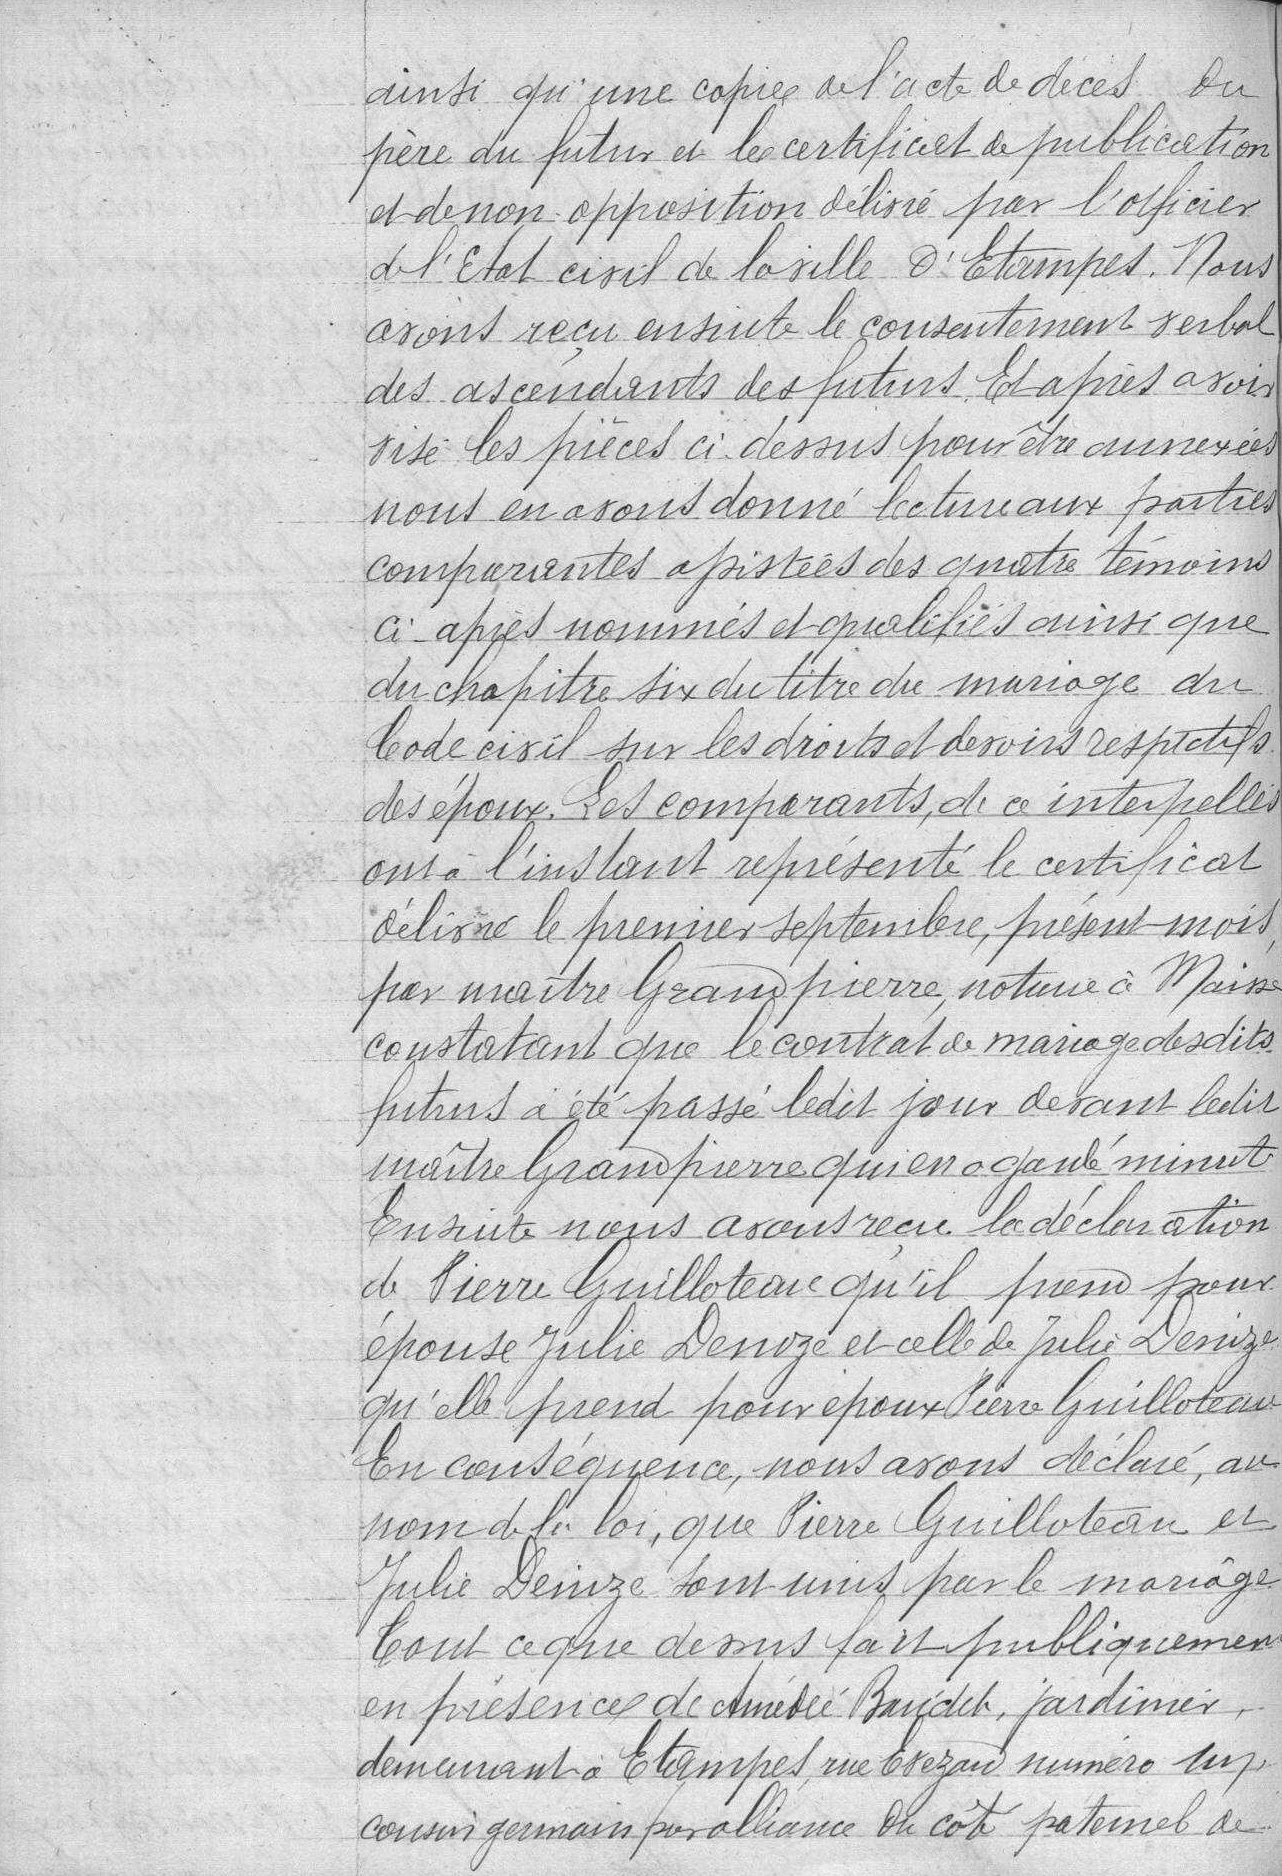 ainsi qu'une copie de l'acte de décès du
père du futur et le certificat de publication
et de non opposition délivré par l'officier
de l'Etat civil de la ville d'Etampes. Nous
avons reçu ensuite le consentement verbal
des ascendants des futurs. Et après avoir
visé les pièces ci-dessus pour être annexées
nous en avons donné lecture aux parties
comparantes assistées des quatre témoins
ci-après nommés et qualifiés ainsi que
du chapitre six du titre du mariage du
Code civil sur les droits et devoirs respectifs
des époux. Les comparants, de ce interpellés
ont à l'instant représenté le certificat
délivré le premier septembre, présent mois,
par maître Grandpierre, notaire à Maisse
constatant que le contrat de mariage desdits
futurs a été passé ledit jour devant ledit
maître Grandpierre qui en a gardé minute
Ensuite nous avons reçu la déclaration
de Pierre Guilloteau qu'il prend pour
épouse Julie Denize et celle de Julie Denize
qu'elle prend pour époux Pierre Guilloteau
En conséquence, nous avons déclaré, au
nom de la loi, que Pierre Guilloteau et
Julie Denize sont unis par le mariage
Tout ce que dessus fait publiquement
en présence de Amédée Baudet, jardinier,
demeurant à Etampes, rue Evezard numéro
cousin germain par alliance du côté paternel de